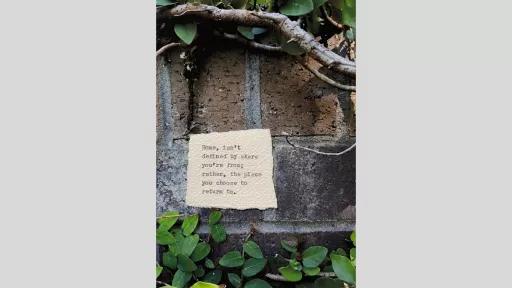 Home, isn't
defined by where
you're from;
rather, the place
you choose to
return to.